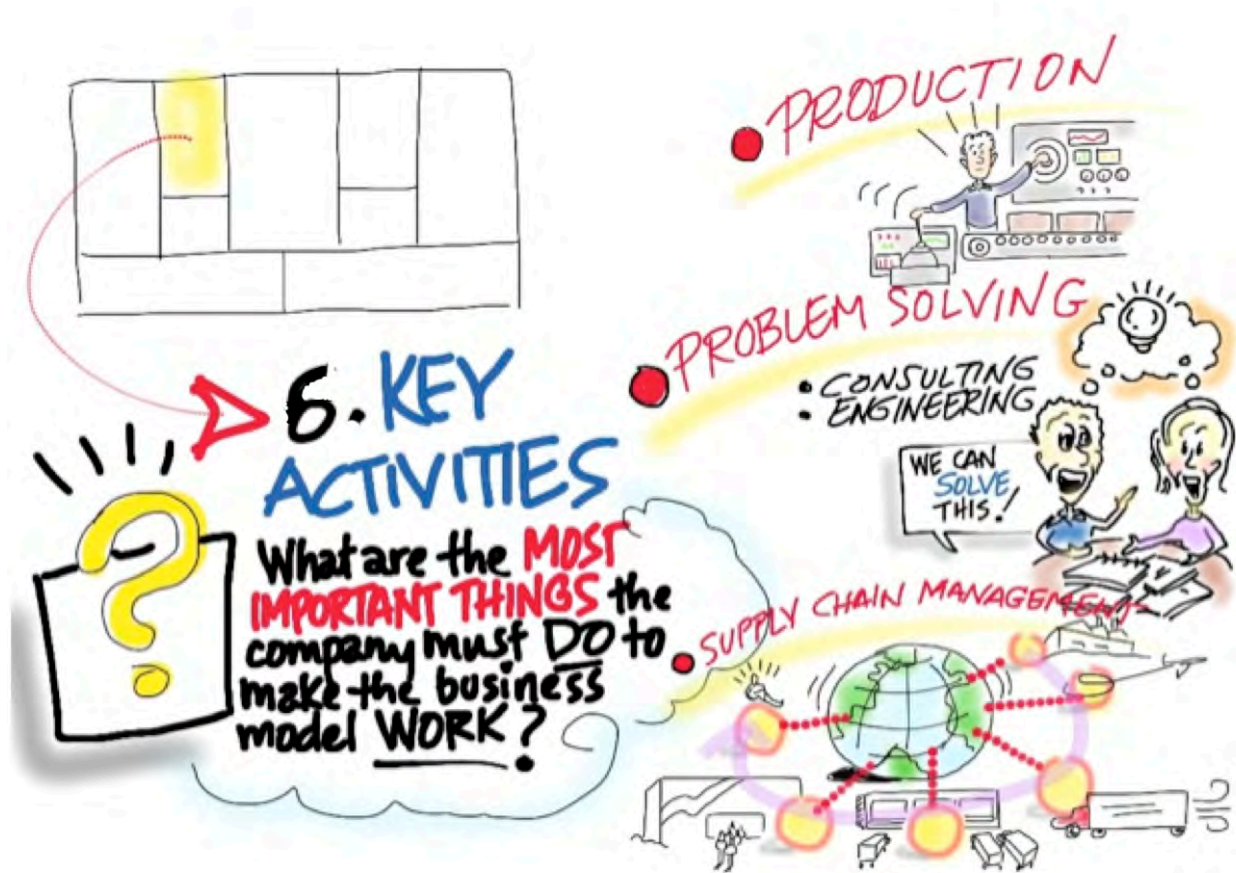 6. KEY
ACTIVITIES
What are the MOST
IMPORTANT THINGS the
company must DO to
make the business
model WORK?
PRODUCTION
PROBLEM SOLVING
• CONSULTING
• ENGINEERING
WE CAN
SOLVE
THIS!
SUPPLY CHAIN MANAGEMENT